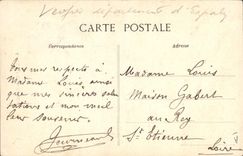 CARTE POSTALE
Correspondance
Adresse
Tous mes respects à
Madame Louis ainsi
que mes sincères salu
tations et mon meil
leur souvenir
Madame Louis
Maison Gabert
au Rey
St Etienne
Loire